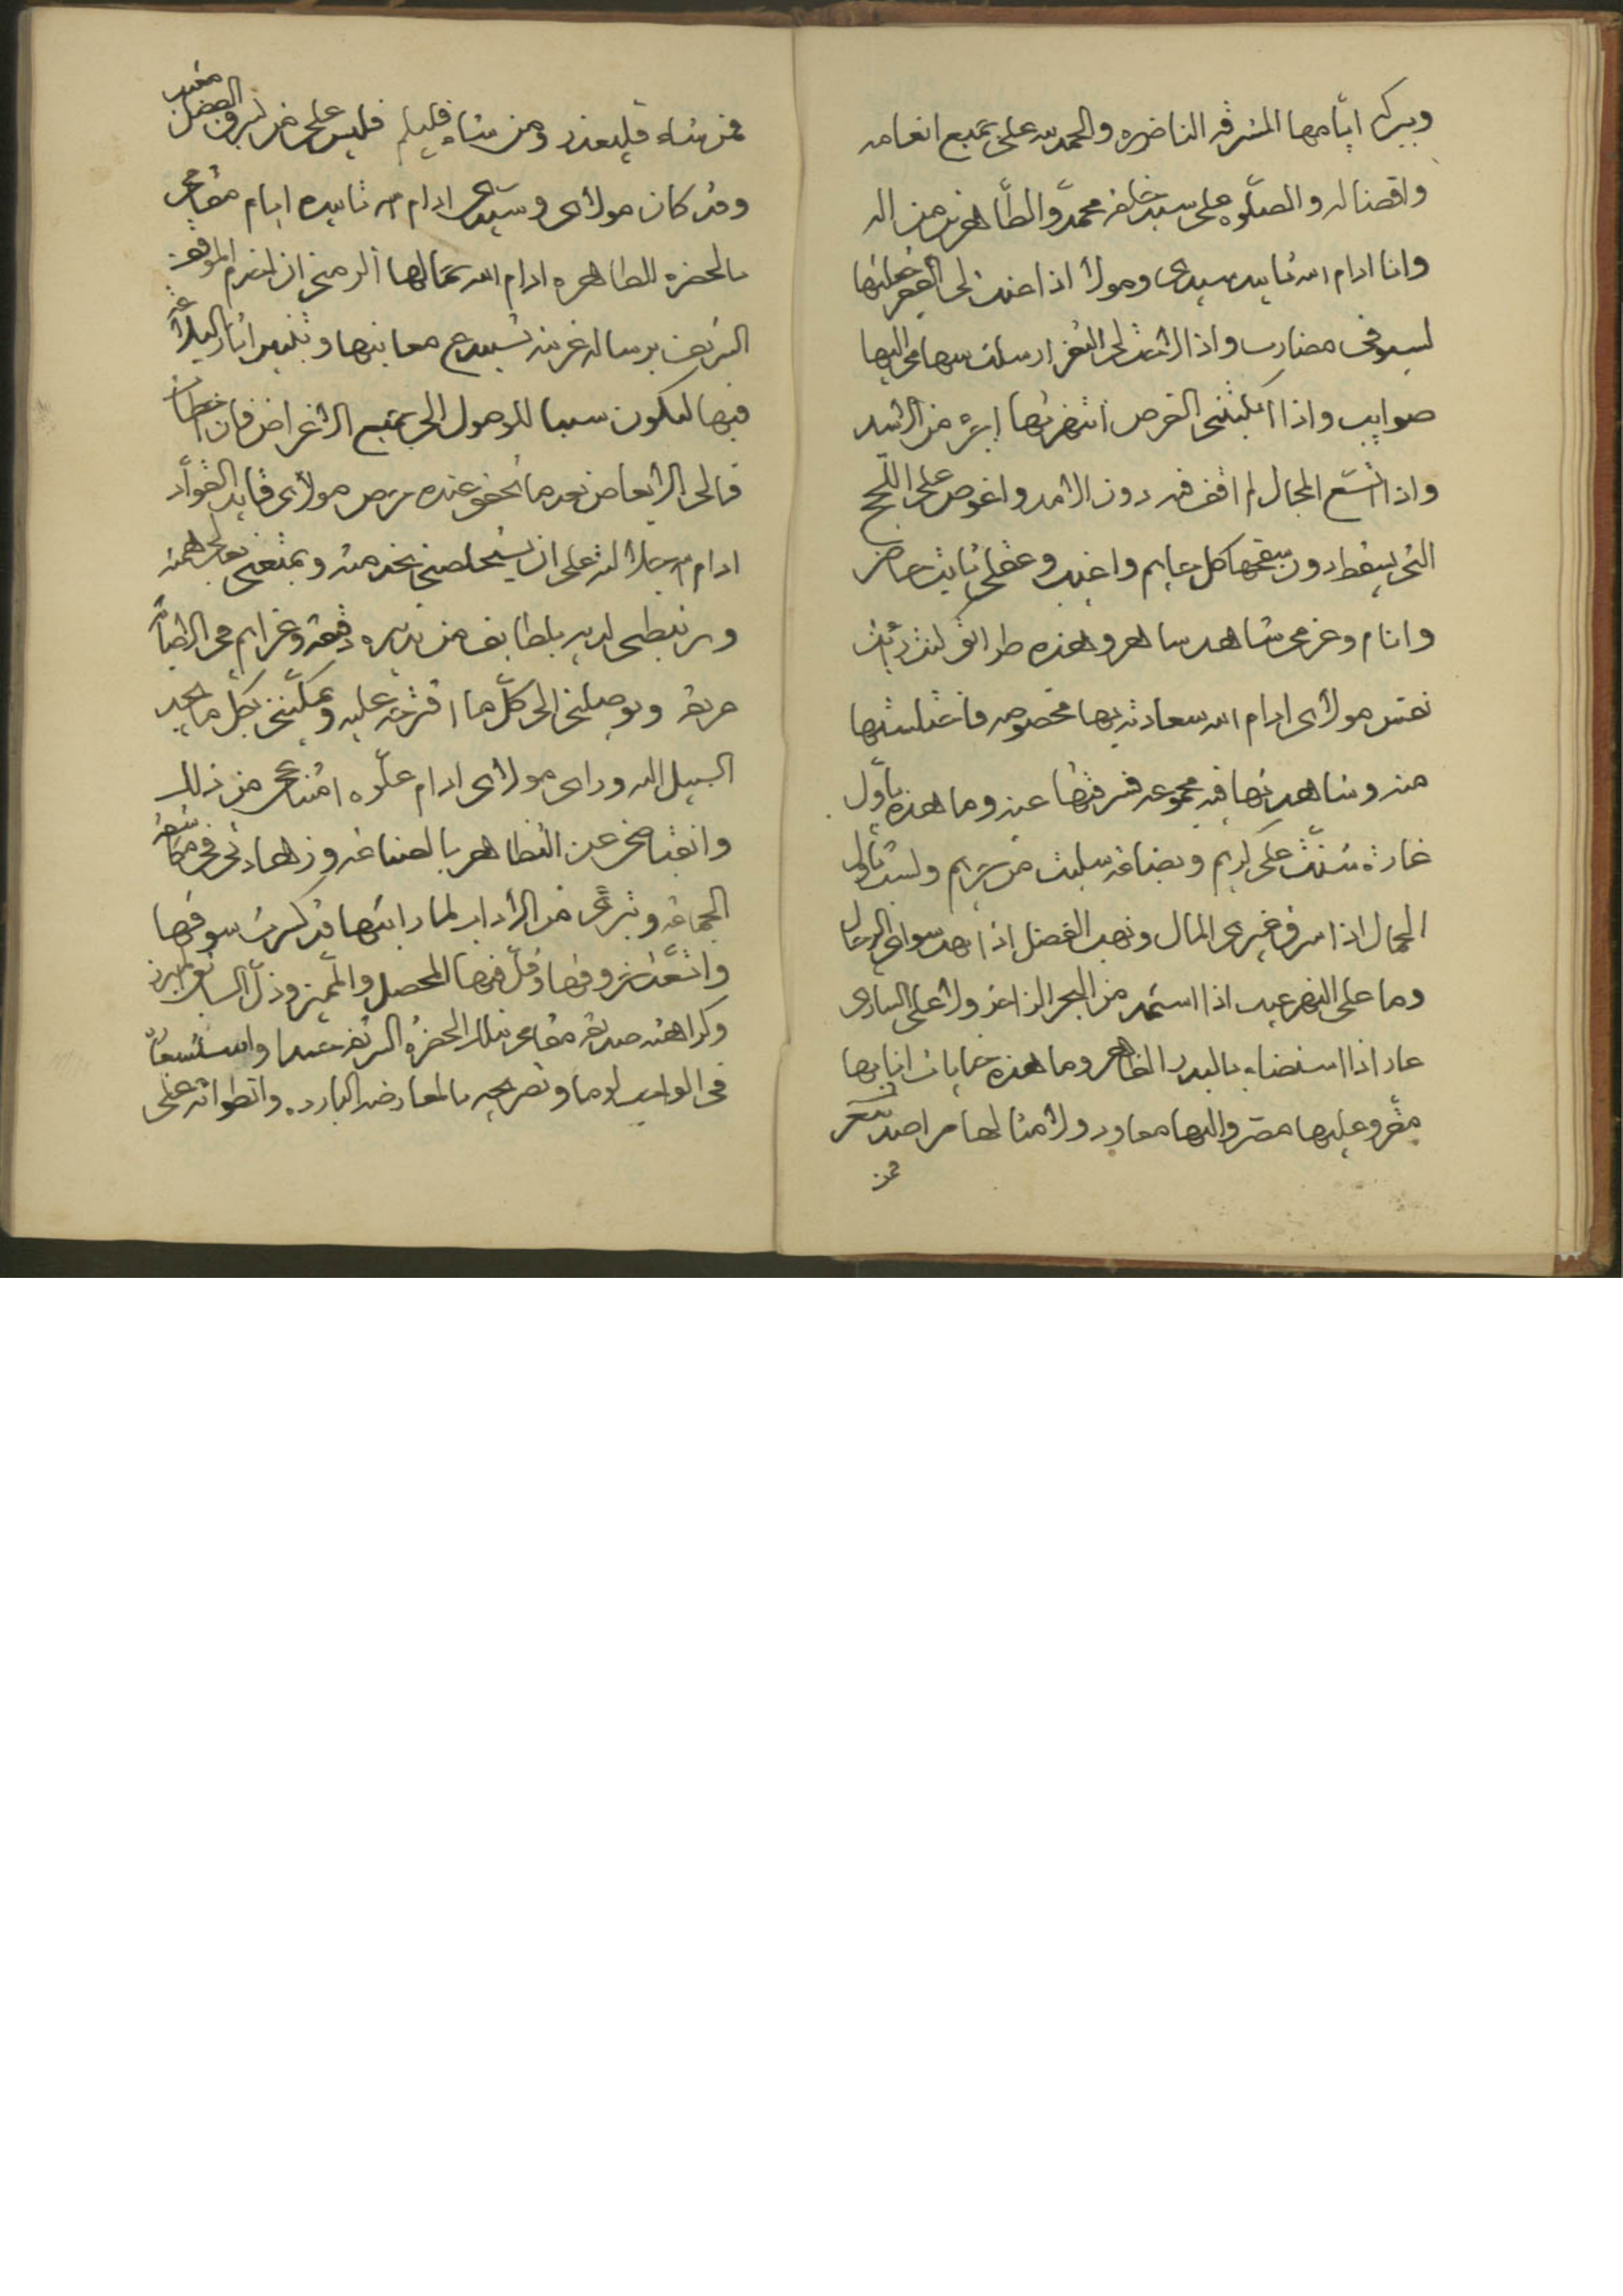 وببركه ايّامها المشرقه الناضره والحمد لله على جميع انعامه
وافضاله والصلوه على سيد خلقه محمد والطّاهرين من اله
وانا ادام الله تاييد سيدى ومولاى اذا عنت لى الفقر جعلتها
لسيوفى مضارب واذا لاحت لى الثغر ارسلت سهامى اليها
صوايب واذا امكنتنى الفرص انتهزتها اجرى من الاسد
واذا اتسع المجال لم اقف فيه دون الامد واغوص على اللّجج
التى يسقط دون سيفها كل عايم واغيب وعقلى ثابت حاضر
وانام وعزمى شاهد ساهر وهذه طرائق كنت رأيت
نفس مولاى ادام الله سعادته بها مخصوصه فاختلستها
منه وشاهدتها فيه مجموعه فسرقتها عنه وما هذه باوّل
غارة شنّت على كريم وبضاعه سلبت من ولست باول
الجمال اذا سرق غيرى المال ونهب الفضل اذا نهب سواى الرحال
وما على النهر عيب اذا استمد من البحر الزاخر ولا على السارى
عار اذا استضاء بالبدر الظاهر وما هذه جنايات انا بها
مقرّ وعليها مصرّ واليها معاود ولامثالها مراصد شعر
فمن
فمن شاء فليعذر ومن شاء فليلم فليس على من يسرق الفضل معتب
وقد كان مولاى وسيدى ادام الله تاييده ايام مقامى
بالحضره الطاهره ادام الله جمالها الزمنى ان اخدم الموقف
الشريف برساله غريبه تستبدع معانيها وتلتمس اثار البلاغه
فيها لتكون سببا للوصول الى جميع الاغراض فان اخطات
فالى الابعاض بعد ما تحقق عنده حرص مولاى قايد القوّاد
ادام الله جلالته على ان يستخلصنى بخدمته ويمتعنى بعالى همته
ويرتبطى لديه بلطايف من تدبيره دقيقه وعزايم فى الاحسان
حريقه ويوصلنى الى كلّ ما اقترحته عليه ويمكّننى بكلّ ما يجد
السبيل اليه وراى مولاى ادام علّوه امتناعى من ذلك
وانقباضى عن التظاهر بالصناعه وزهادتى فى مكاشفه
الجماعه وتبرئى من الاداب لما رايتها قد كسرت سوقها
واشتد بروقها وقلّ فيها المحصل والمميز وذلّ السابق المبرز
وكراهته صديقه مقامى بتلك الحضرة الشريفه
فى وتصريحه بالمعارضه البارده وانطوائه على